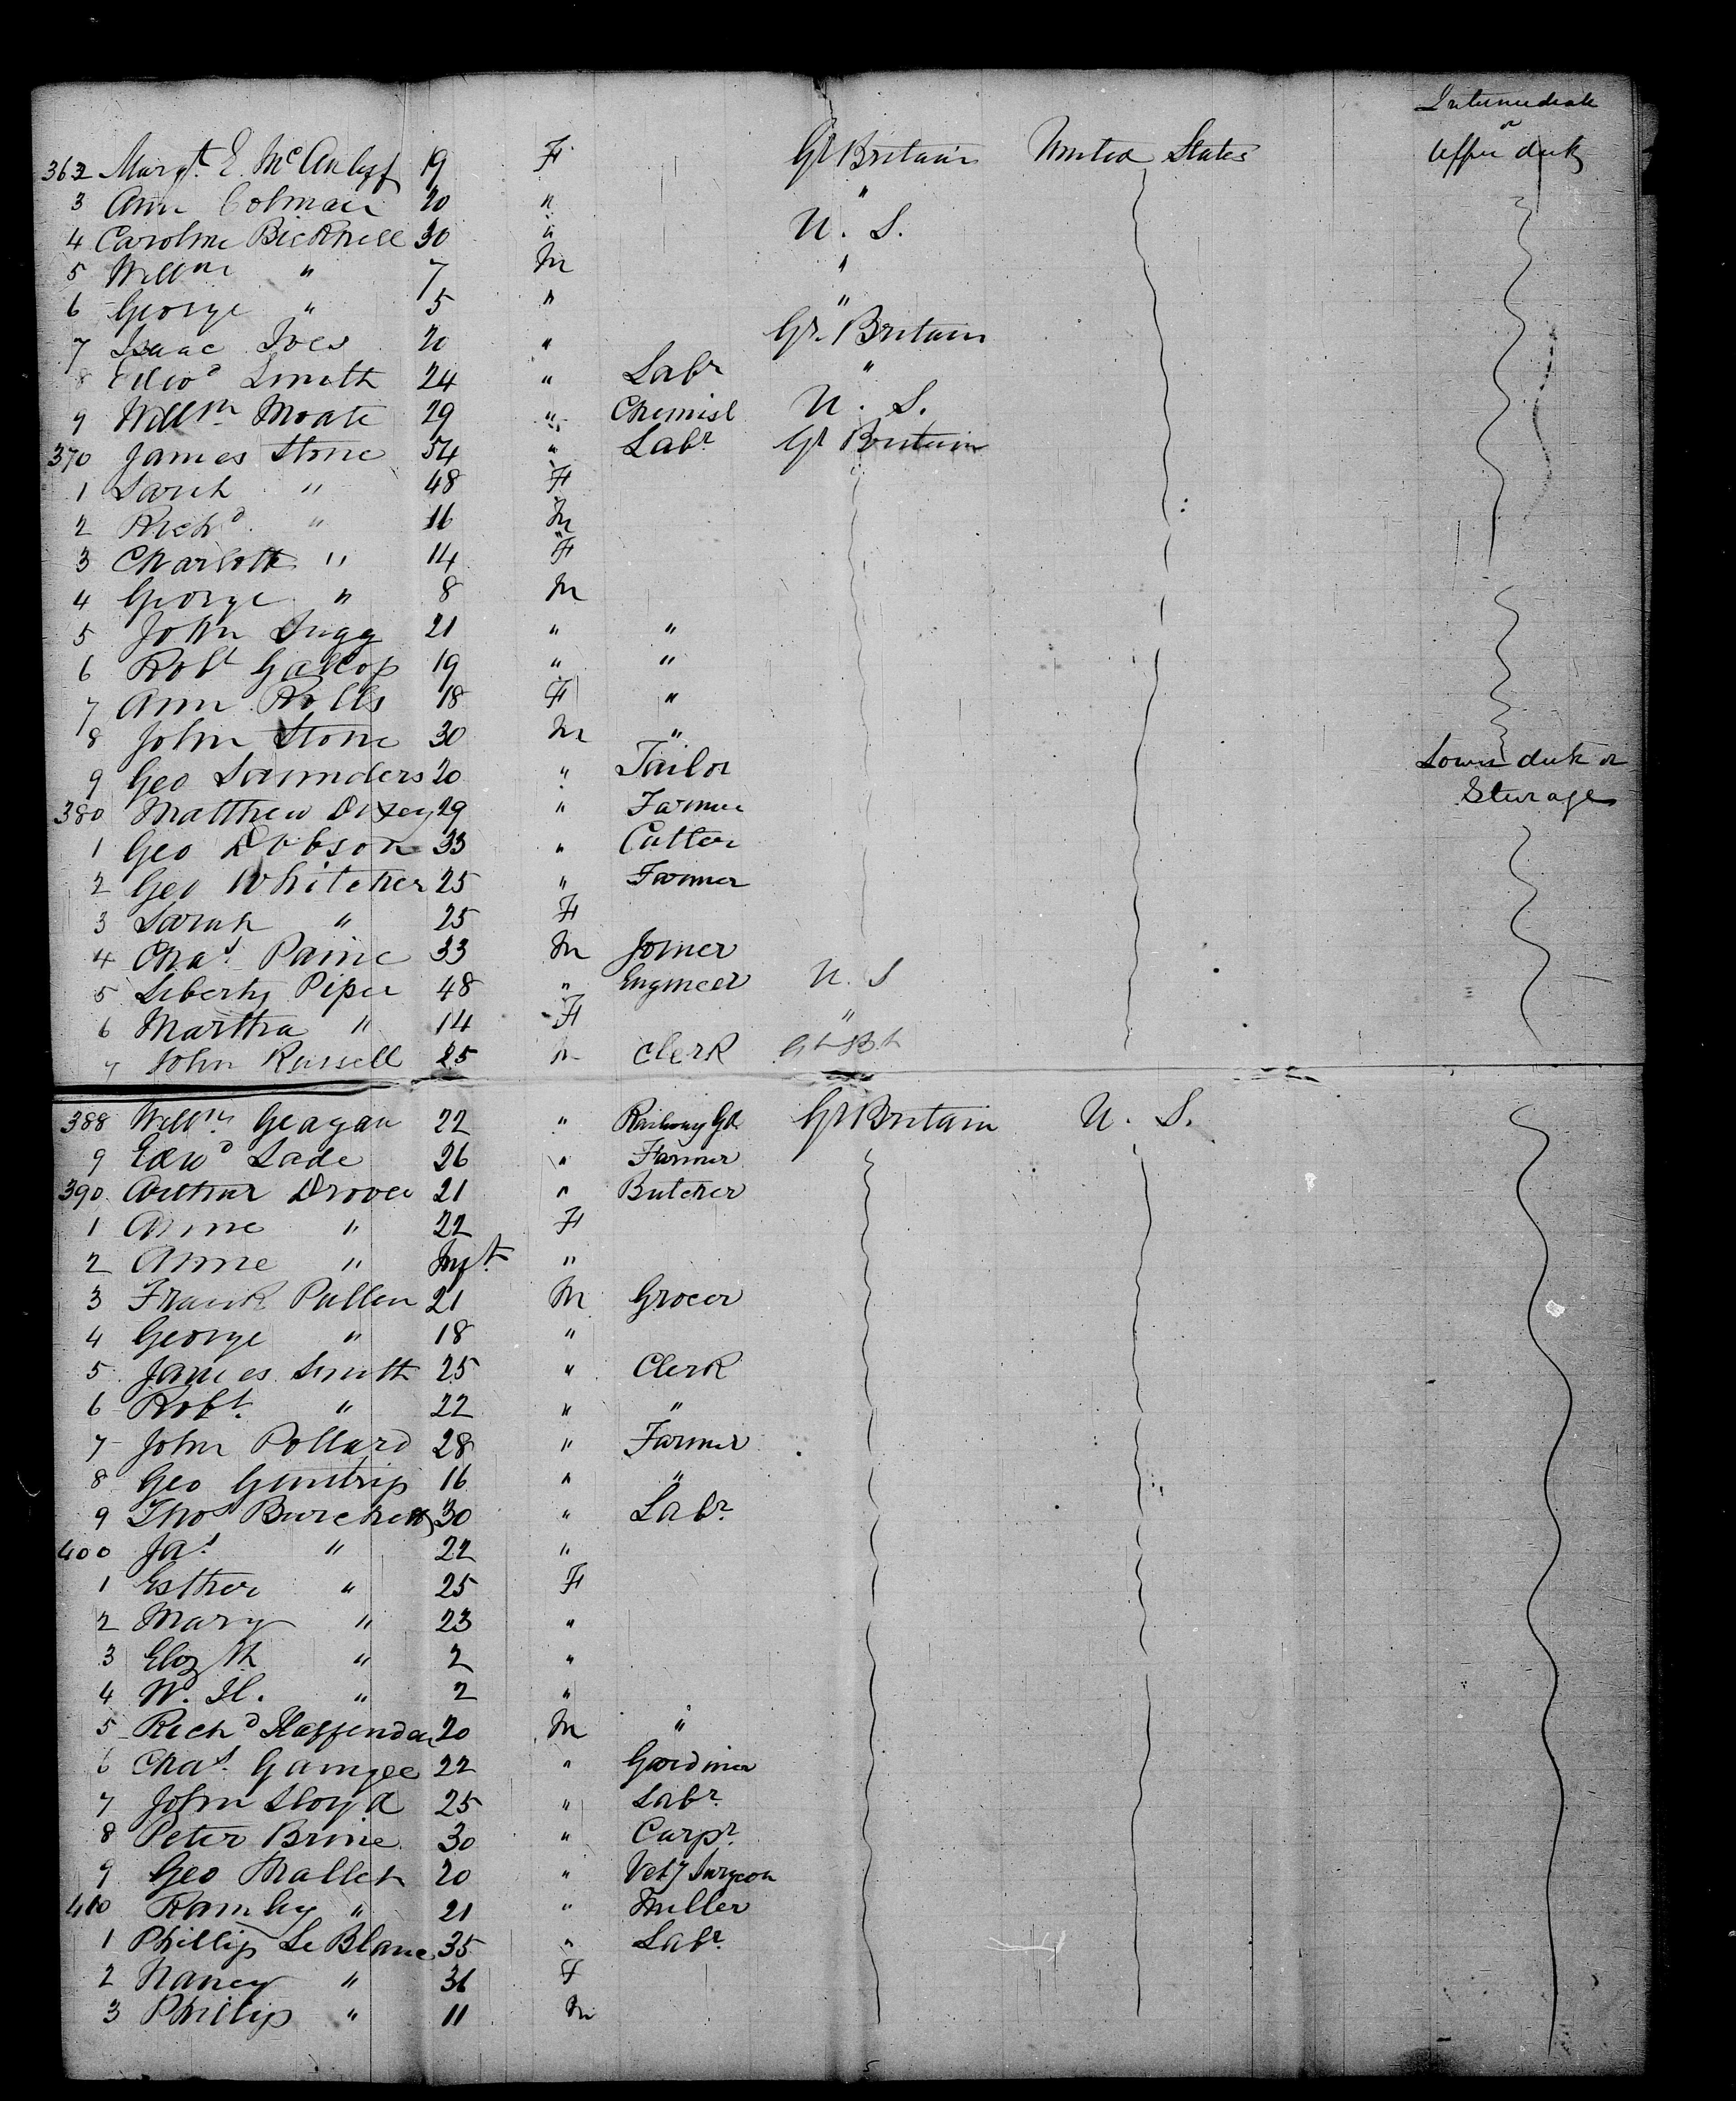 Intermediate
or
362 Margt. E. McAnlyff 19 F Gt Britain United States Upper deck
3 Ann Colman 20 " "
4 Caroline Bicknell 30 " U. S.
5 Willm " 7 M "
6 George " 5 " "
7 Isaac Ives 20 " Gt. Britain
8 Edwd Smith 24 " Labr "
9 Willm. Moate 29 " Chemist U. S.
370 James Stone 54 " Labr. Gt Britain
1 Sarah " 48 F
2 Richd. " 16 M
3 Charlotte " 14 F
4 George " 8 M
5 John Sugg 21 " "
6 Robt Gallop 19 " "
7 Ann Rolls 18 F "
8 John Stone 30 M "
9 Geo Saunders 20 " Tailor Lower deck or
380 Matthew Dixey 29 " Farmer Sterage
1 Geo Dobson 33 " Cutter
2 Geo Whitcher 25 " Farmer
3 Sarah " 25 F
4 Chas. Paine 33 M Joiner
5 Liberty Piper 48 " Engineer U. S
6 Martha " 14 F "
7 John Russell 25 M Clerk Gt Bt
388 Willm. Geagan 22 " Railway Gd. Gt Britain U. S.
9 Edwd Lade 26 " Farmer
390 Arthur Drover 21 " Butcher
1 Anne " 22 F
2 Anne " Inft. "
3 Frank Pullen 21 M Grocer
4 George " 18 "
5 James Smith 25 " Clerk
6 Robt. " 22 " "
7 John Pollard 28 " Farmer
8 Geo Guntrip 16 " "
9 Thos Burchett 30 " Labr.
400 Jas. " 22 "
1 Esther " 25 F
2 Mary " 23 "
3 Elizth " 2 "
4 W. H. " 2 "
5 Richd Haffenden 20 M "
6 Chas. Gamgee 22 " Gardiner
7 John Lloyd 25 " Labr.
8 Peter Brine 30 " Carpr.
9 Geo Mallet 20 " Vety Surgeon
410 " 21 " Miller
1 Phillip Le Blanc 35 " Labr.
2 Nancy " 31 F
3 Phillip " 11 M